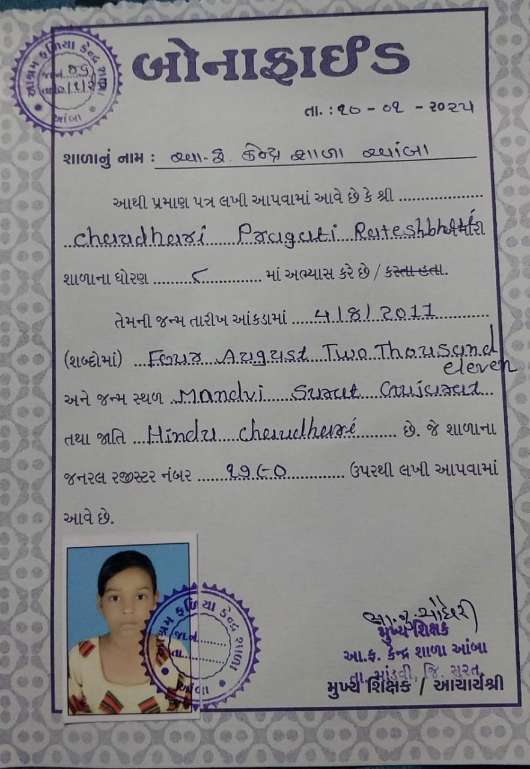 આશ્રમ ફળિયા કેન્દ્ર શાળા
આંબા
બોનાફાઈડ
તા. : ૧૦ - ૦૧ - ૨૦૨૫
શાળાનું નામ : આ.ફ. કેન્દ્ર શાળા આંબા
આથી પ્રમાણ પત્ર લખી આપવામાં આવે છે કે શ્રી ..................
chaudhari Pragati Rateshbhai
શાળાના ધોરણ ........ ૮ ........ માં અભ્યાસ કરે છે / કરતા હતા.
તેમની જન્મ તારીખ આંકડામાં ....4/8/2011..........
(શબ્દોમાં) ..Four August Two Thousand
eleven
અને જન્મ સ્થળ ..Mandvi Surat Gujarat...
તથા જાતિ ..Hindu chaudhari......... છે. જે શાળાના
જનરલ રજીસ્ટર નંબર ......૧૭૮૦........... ઉપરથી લખી આપવામાં
આવે છે.
આશ્રમ ફળિયા કેન્દ્ર શાળા
જા.નં.
તા.
આંબા
મુખ્ય શિક્ષક
આ.ફ. કેન્દ્ર શાળા આંબા
તા. માંડવી, જિ. સુરત
મુખ્ય શિક્ષક / આચાર્યશ્રી